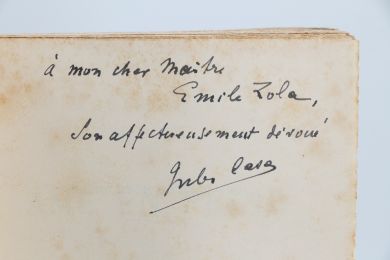 à mon cher Maître
Emile Zola,
Son affectueusement dévoué
Jules Case